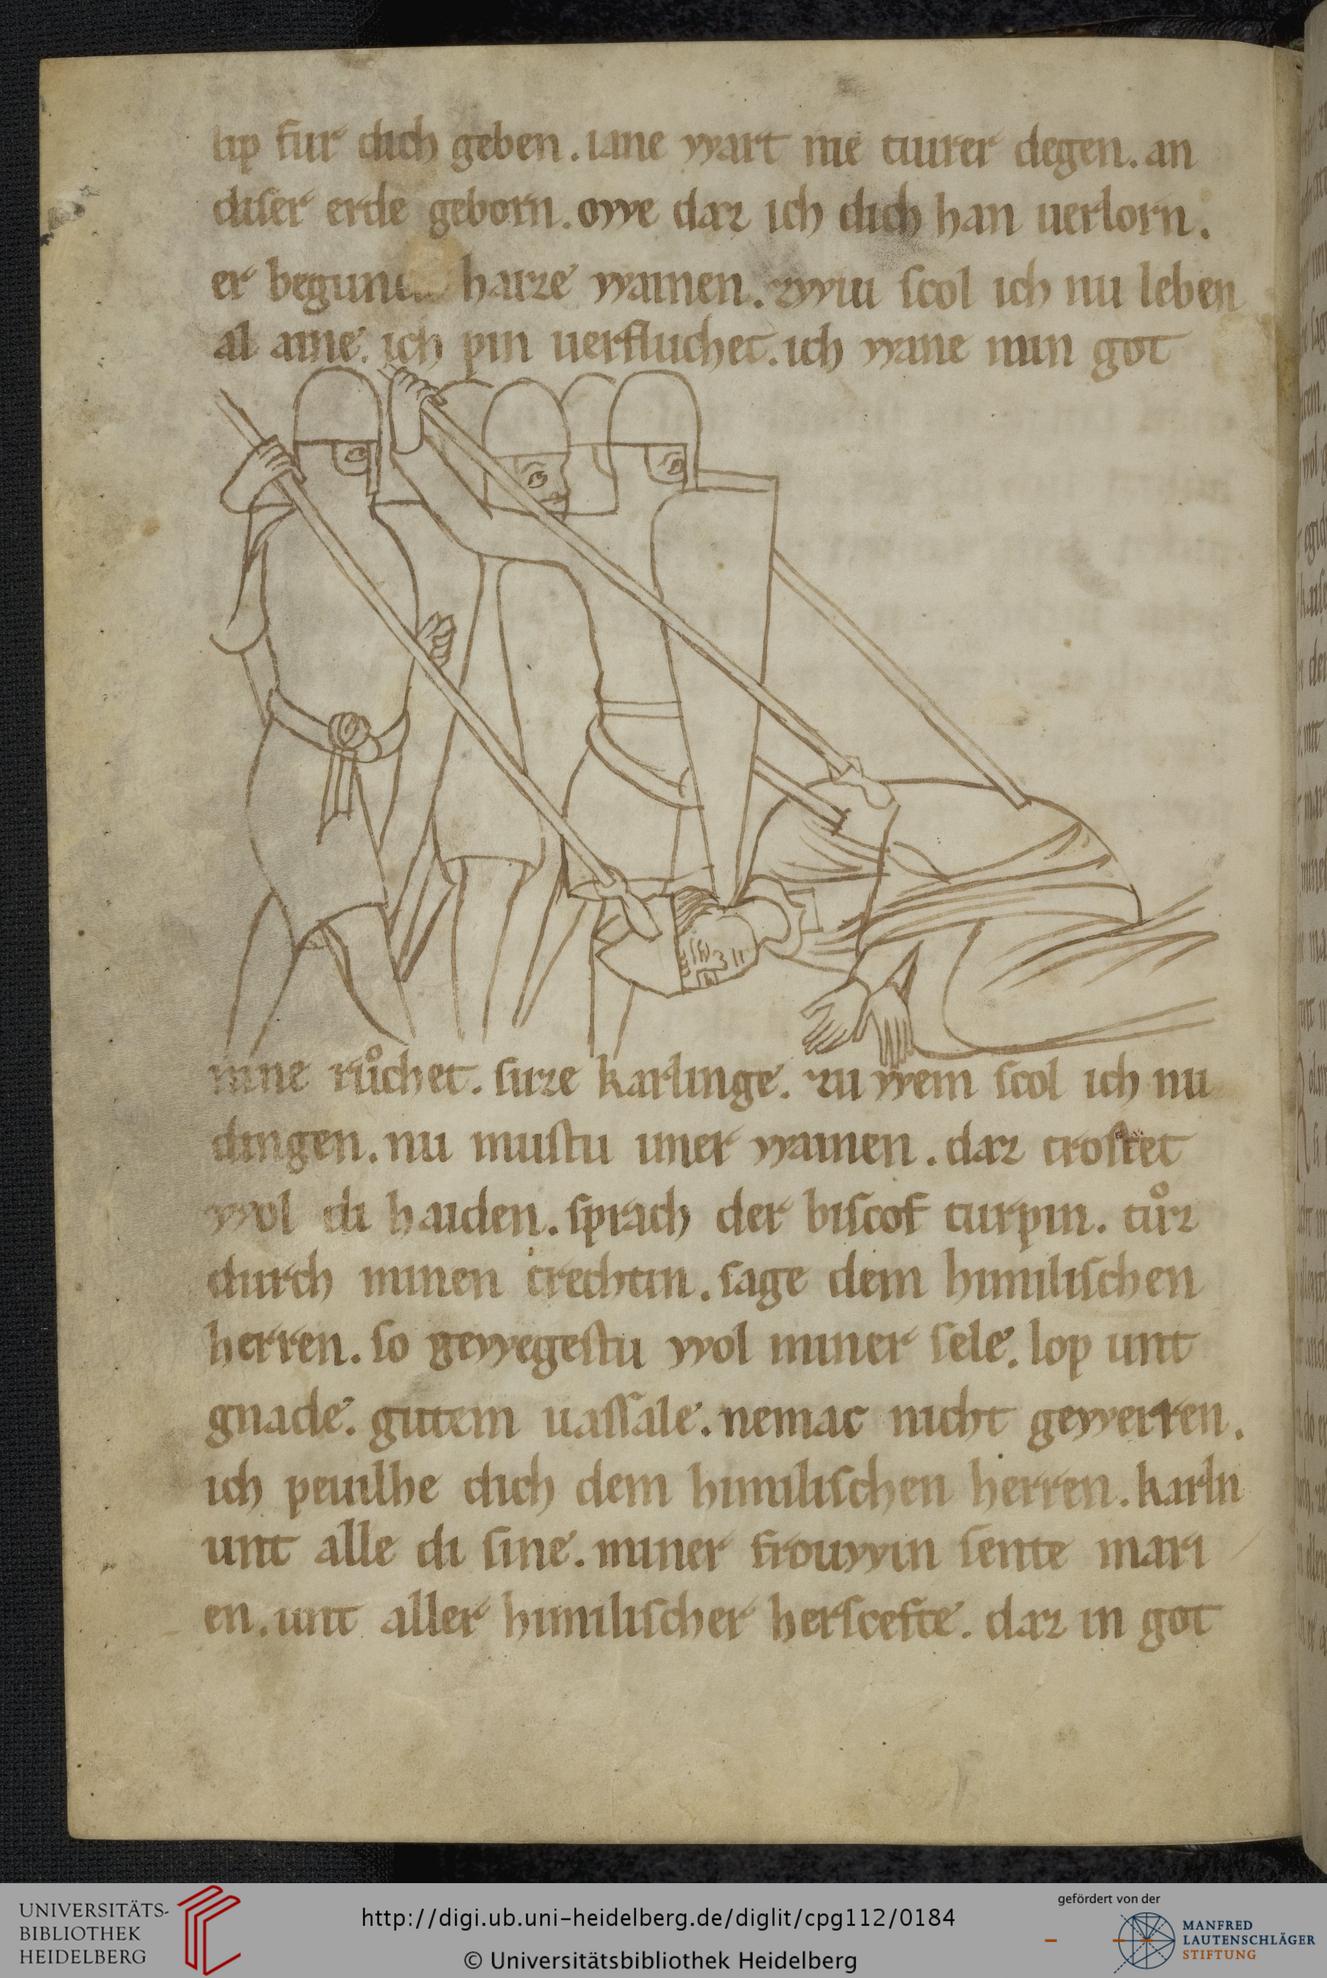 lip fur dich geben. iane wart nie tiurer degen. an
diser erde geborn. owe daz ich dich han uerlorn.
er begunde harte wainen. zwiu scol ich nu leben
al aine. ich pin uerfluchet. ich wane min got
mine růchet. suze karlinge. zu wem scol ich nu
dingen. nu mustu imer wainen. daz trostet
wol di haiden. sprach der biscof turpin. tůz
durch minen trechtin. sage dem himilischen
herren. so gewegestu wol miner sele. lop unt
gnade. gutem uassale. nemac nicht gewerren.
ich peuilhe dich dem himilischen herren. karln
unt alle di sine. miner frouwin sente mari
en. unt aller himilischer herscefte. daz in got
UNIVERSITÄTS-
BIBLIOTHEK
HEIDELBERG
http://digi.ub.uni-heidelberg.de/diglit/cpg112/0184
© Universitätsbibliothek Heidelberg
gefördert von der
MANFRED
LAUTENSCHLÄGER
STIFTUNG